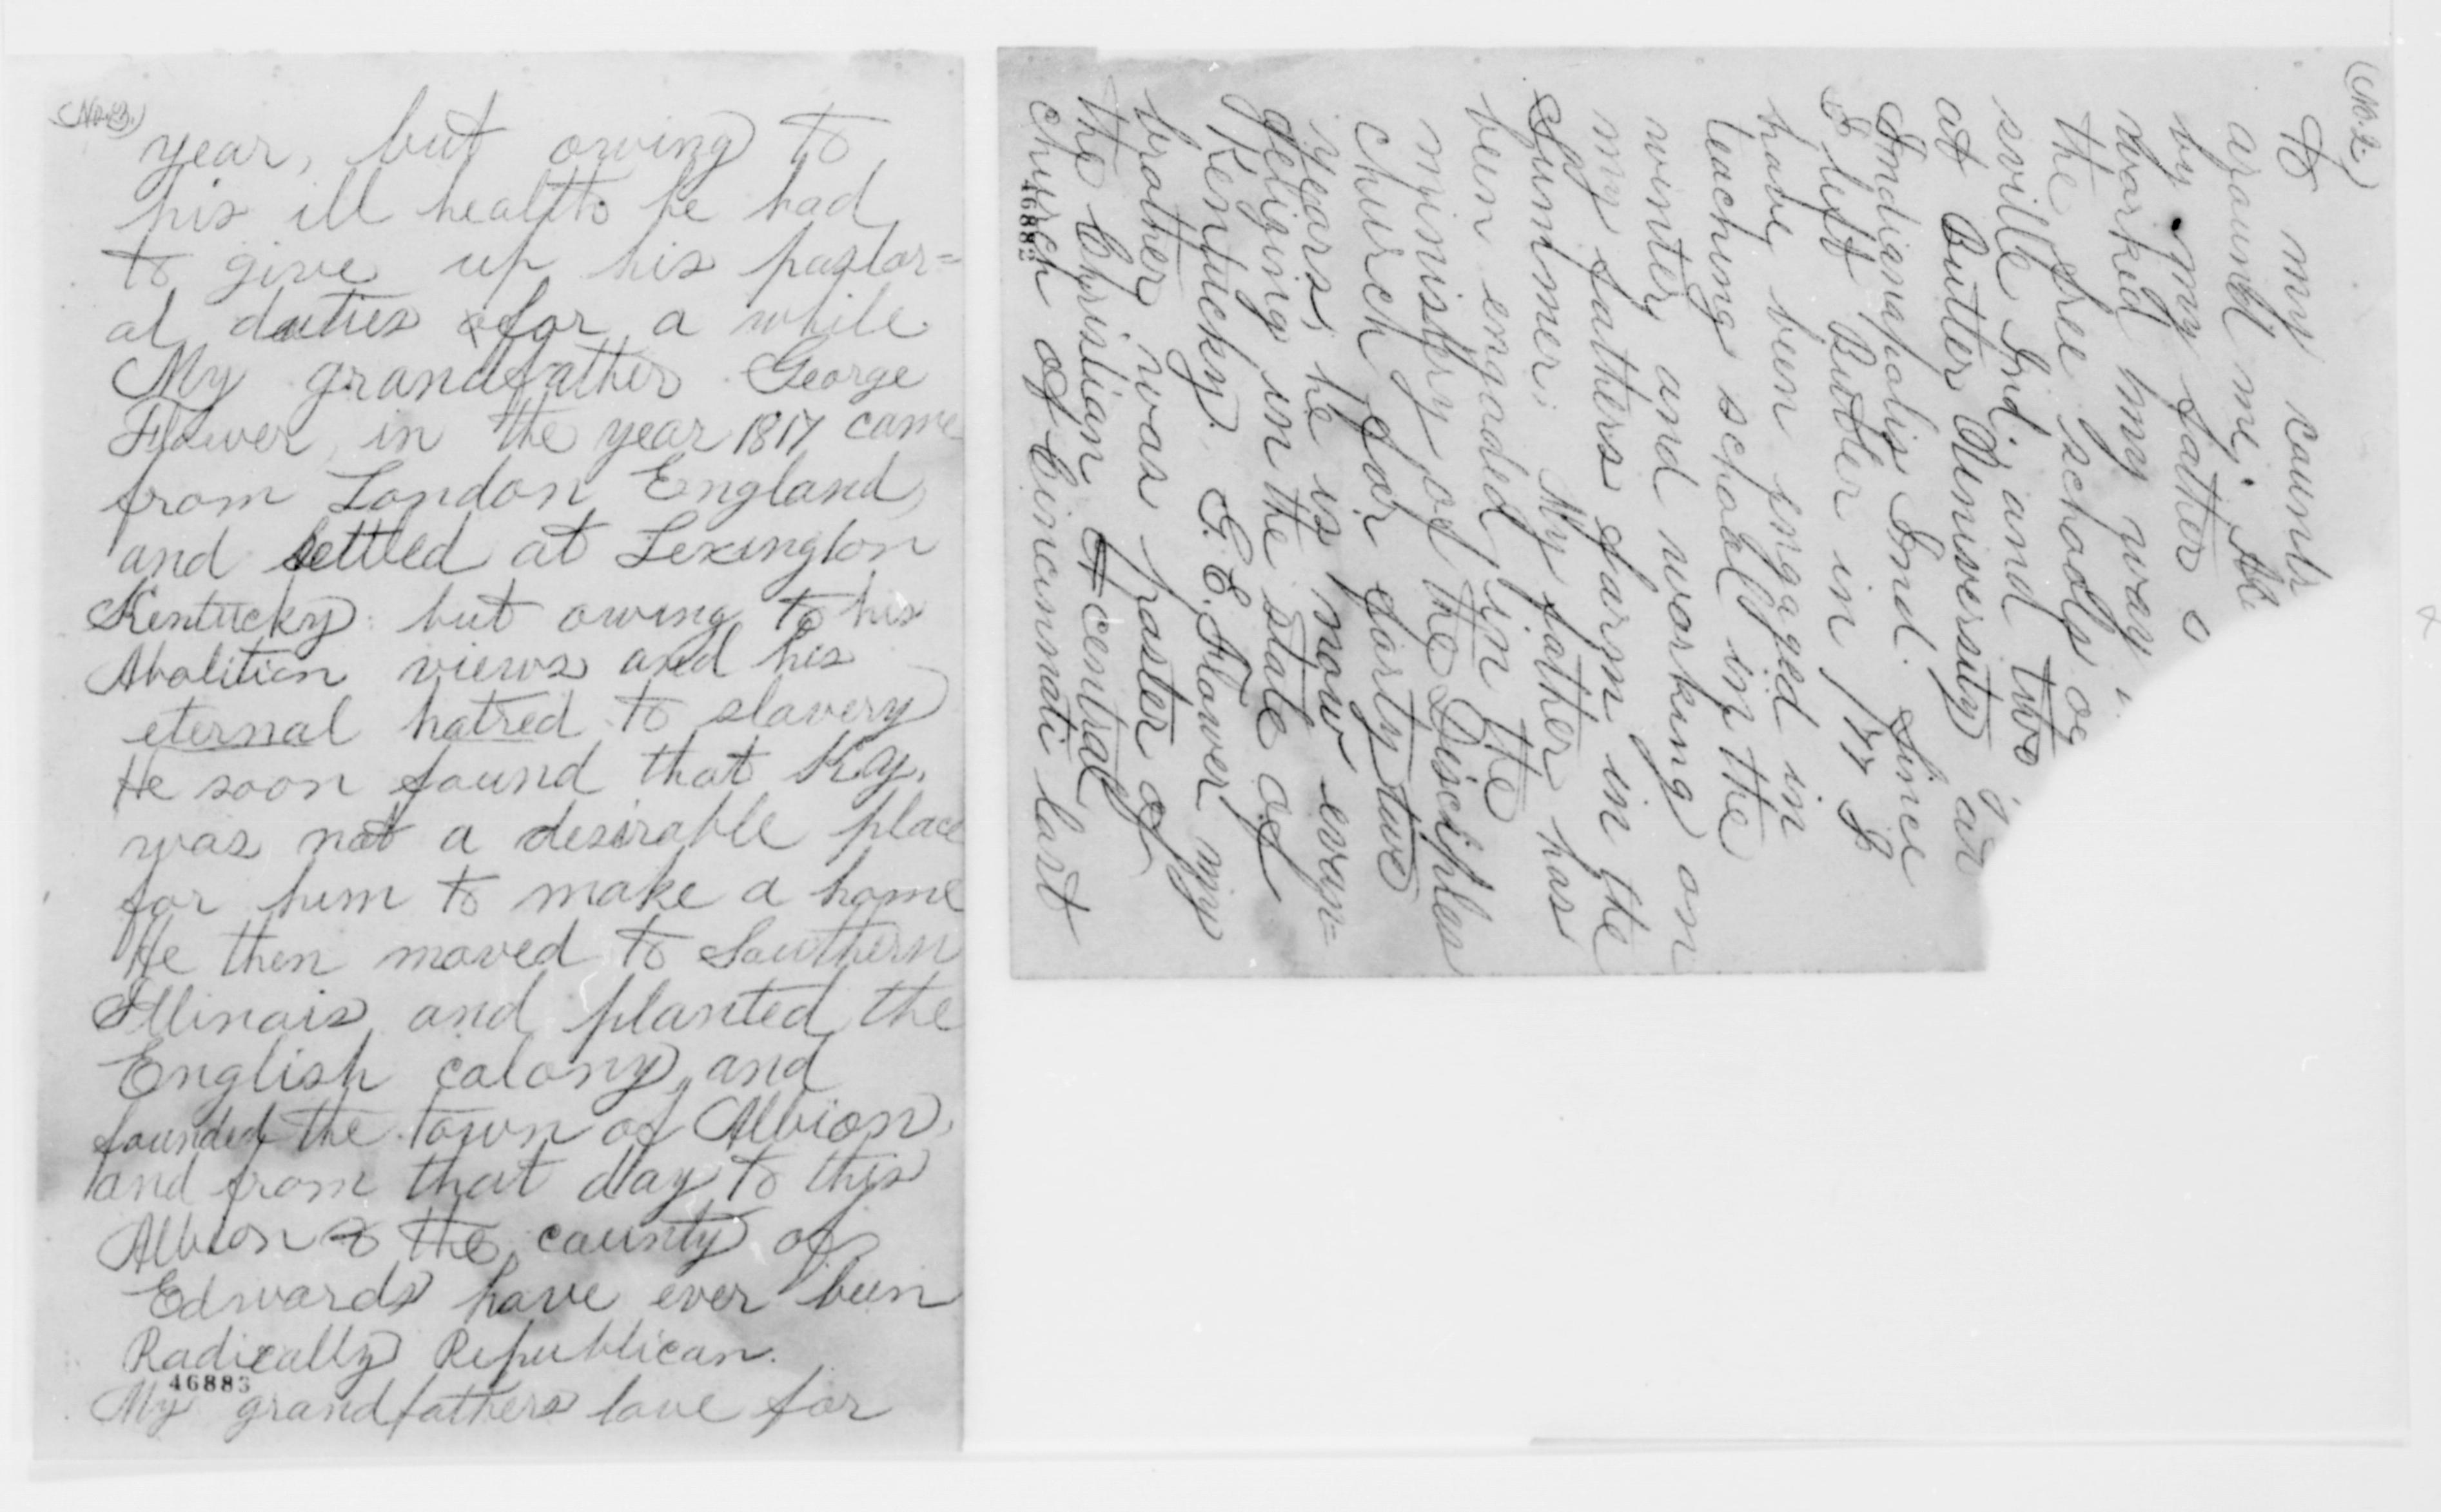 (No. 3.)
year, but owing to
his ill health he had
to give up his pastor=
al duties for a while
My grandfather George
Flower, in the year 1817 came
from London England
and settled at Lexington
Kentucky: but owing to his
Abolition views and his
eternal hatred to slavery
He soon found that Ky.
was not a desirable place
for him to make a home
He then moved to Southern
Illinois and planted the
English colony, and
founded the town of Albion,
and from that day to this
Albion & the county of
Edwards have ever been
Radically Republican.
46883
My grandfathers love for
(No. 2.)
to my count
around me,
by my father
worked my way
the free schools of
sville Ind. and two
at Butler University
Indianapolis Ind. Since
I left Butler in I
have been engaged in
teaching school in the
winter, and working on
my fathers farm in the
Summer: My father has
been engaged in the
ministery of the Disciples
church for forty two
years, he is now evan=
gelizing in the state of
Kentucky. G. E. Flower my
brother was paster of
the Christian central
church of Cincinnati last
46882